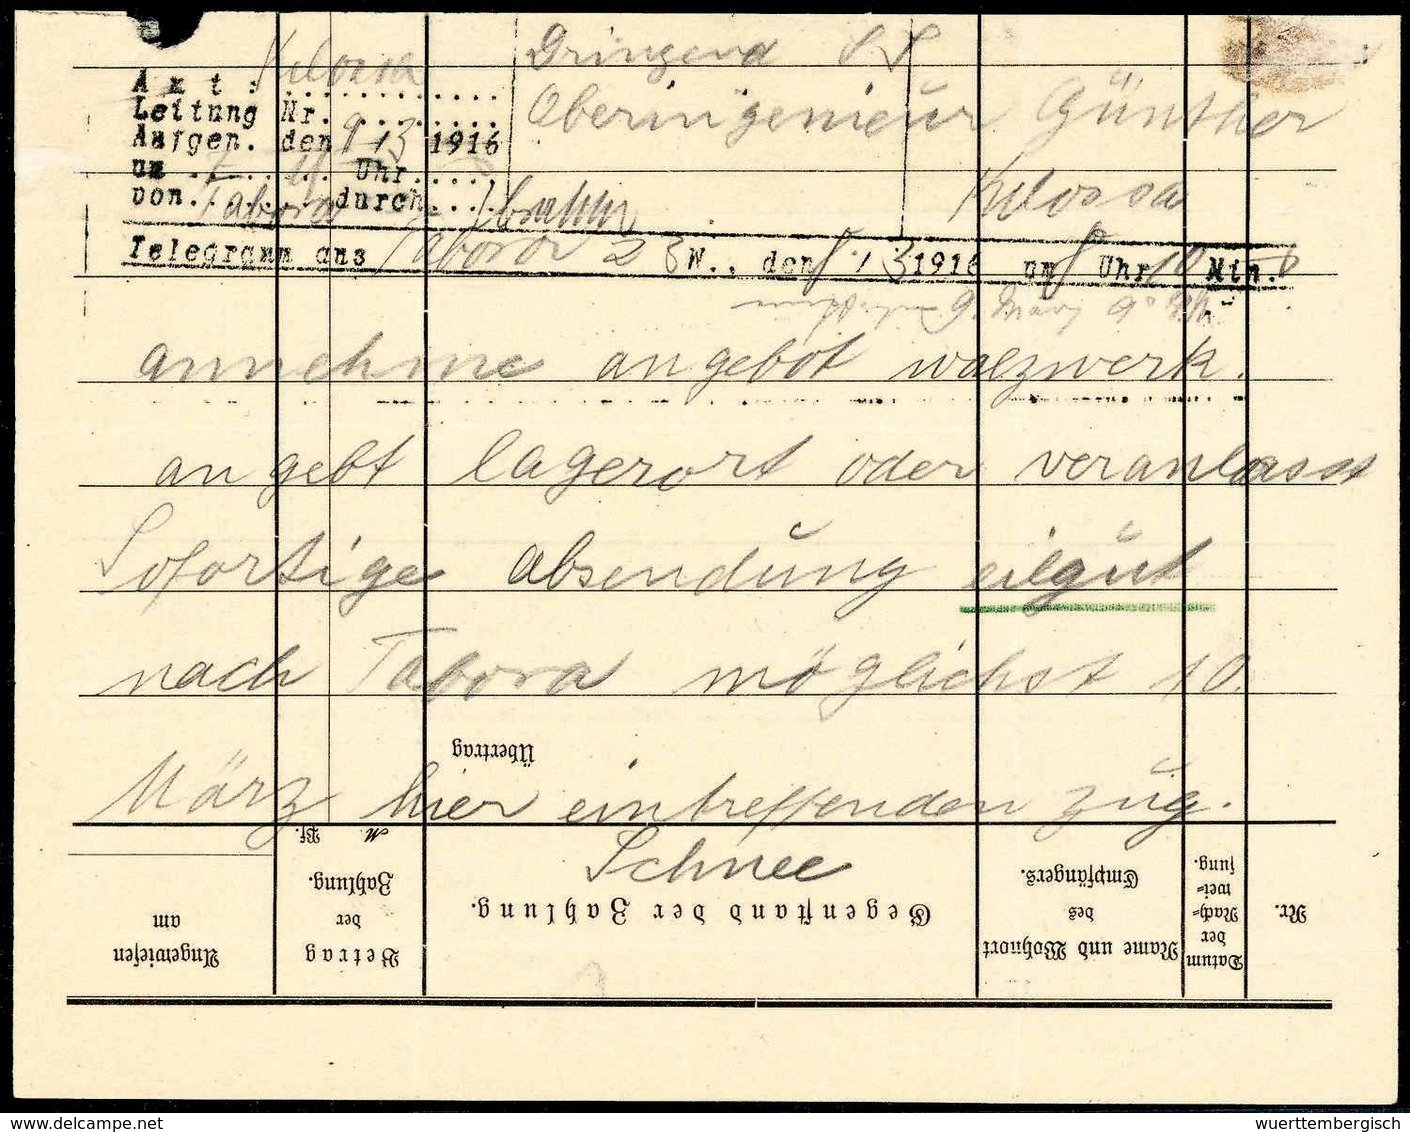 Dringend S S
Amt: Kilossa
Leitung Nr.
Oberingenieur Günther
Aufgen. den 9/3 1916
um Uhr
Kilossa
von Tabora durch
Telegramm aus Tabora 28 W., den 8/3 1916 um 8 Uhr 10 Min.
9. März 9°
annehme angebot walzwerk.
angebt lagerort oder veranlasst
Sofortige absendung eilgut
nach Tabora möglichst 10.
Übertrag
März hier eintreffenden zug.
M. Pf.
Schnee
Nr.
Datum der Nach-wei-sung.
Name und Wohnort des Empfängers.
Gegenstand der Zahlung.
Betrag der Zahlung.
Angewiesen am
www.delcampe.net
wuerttembergisch